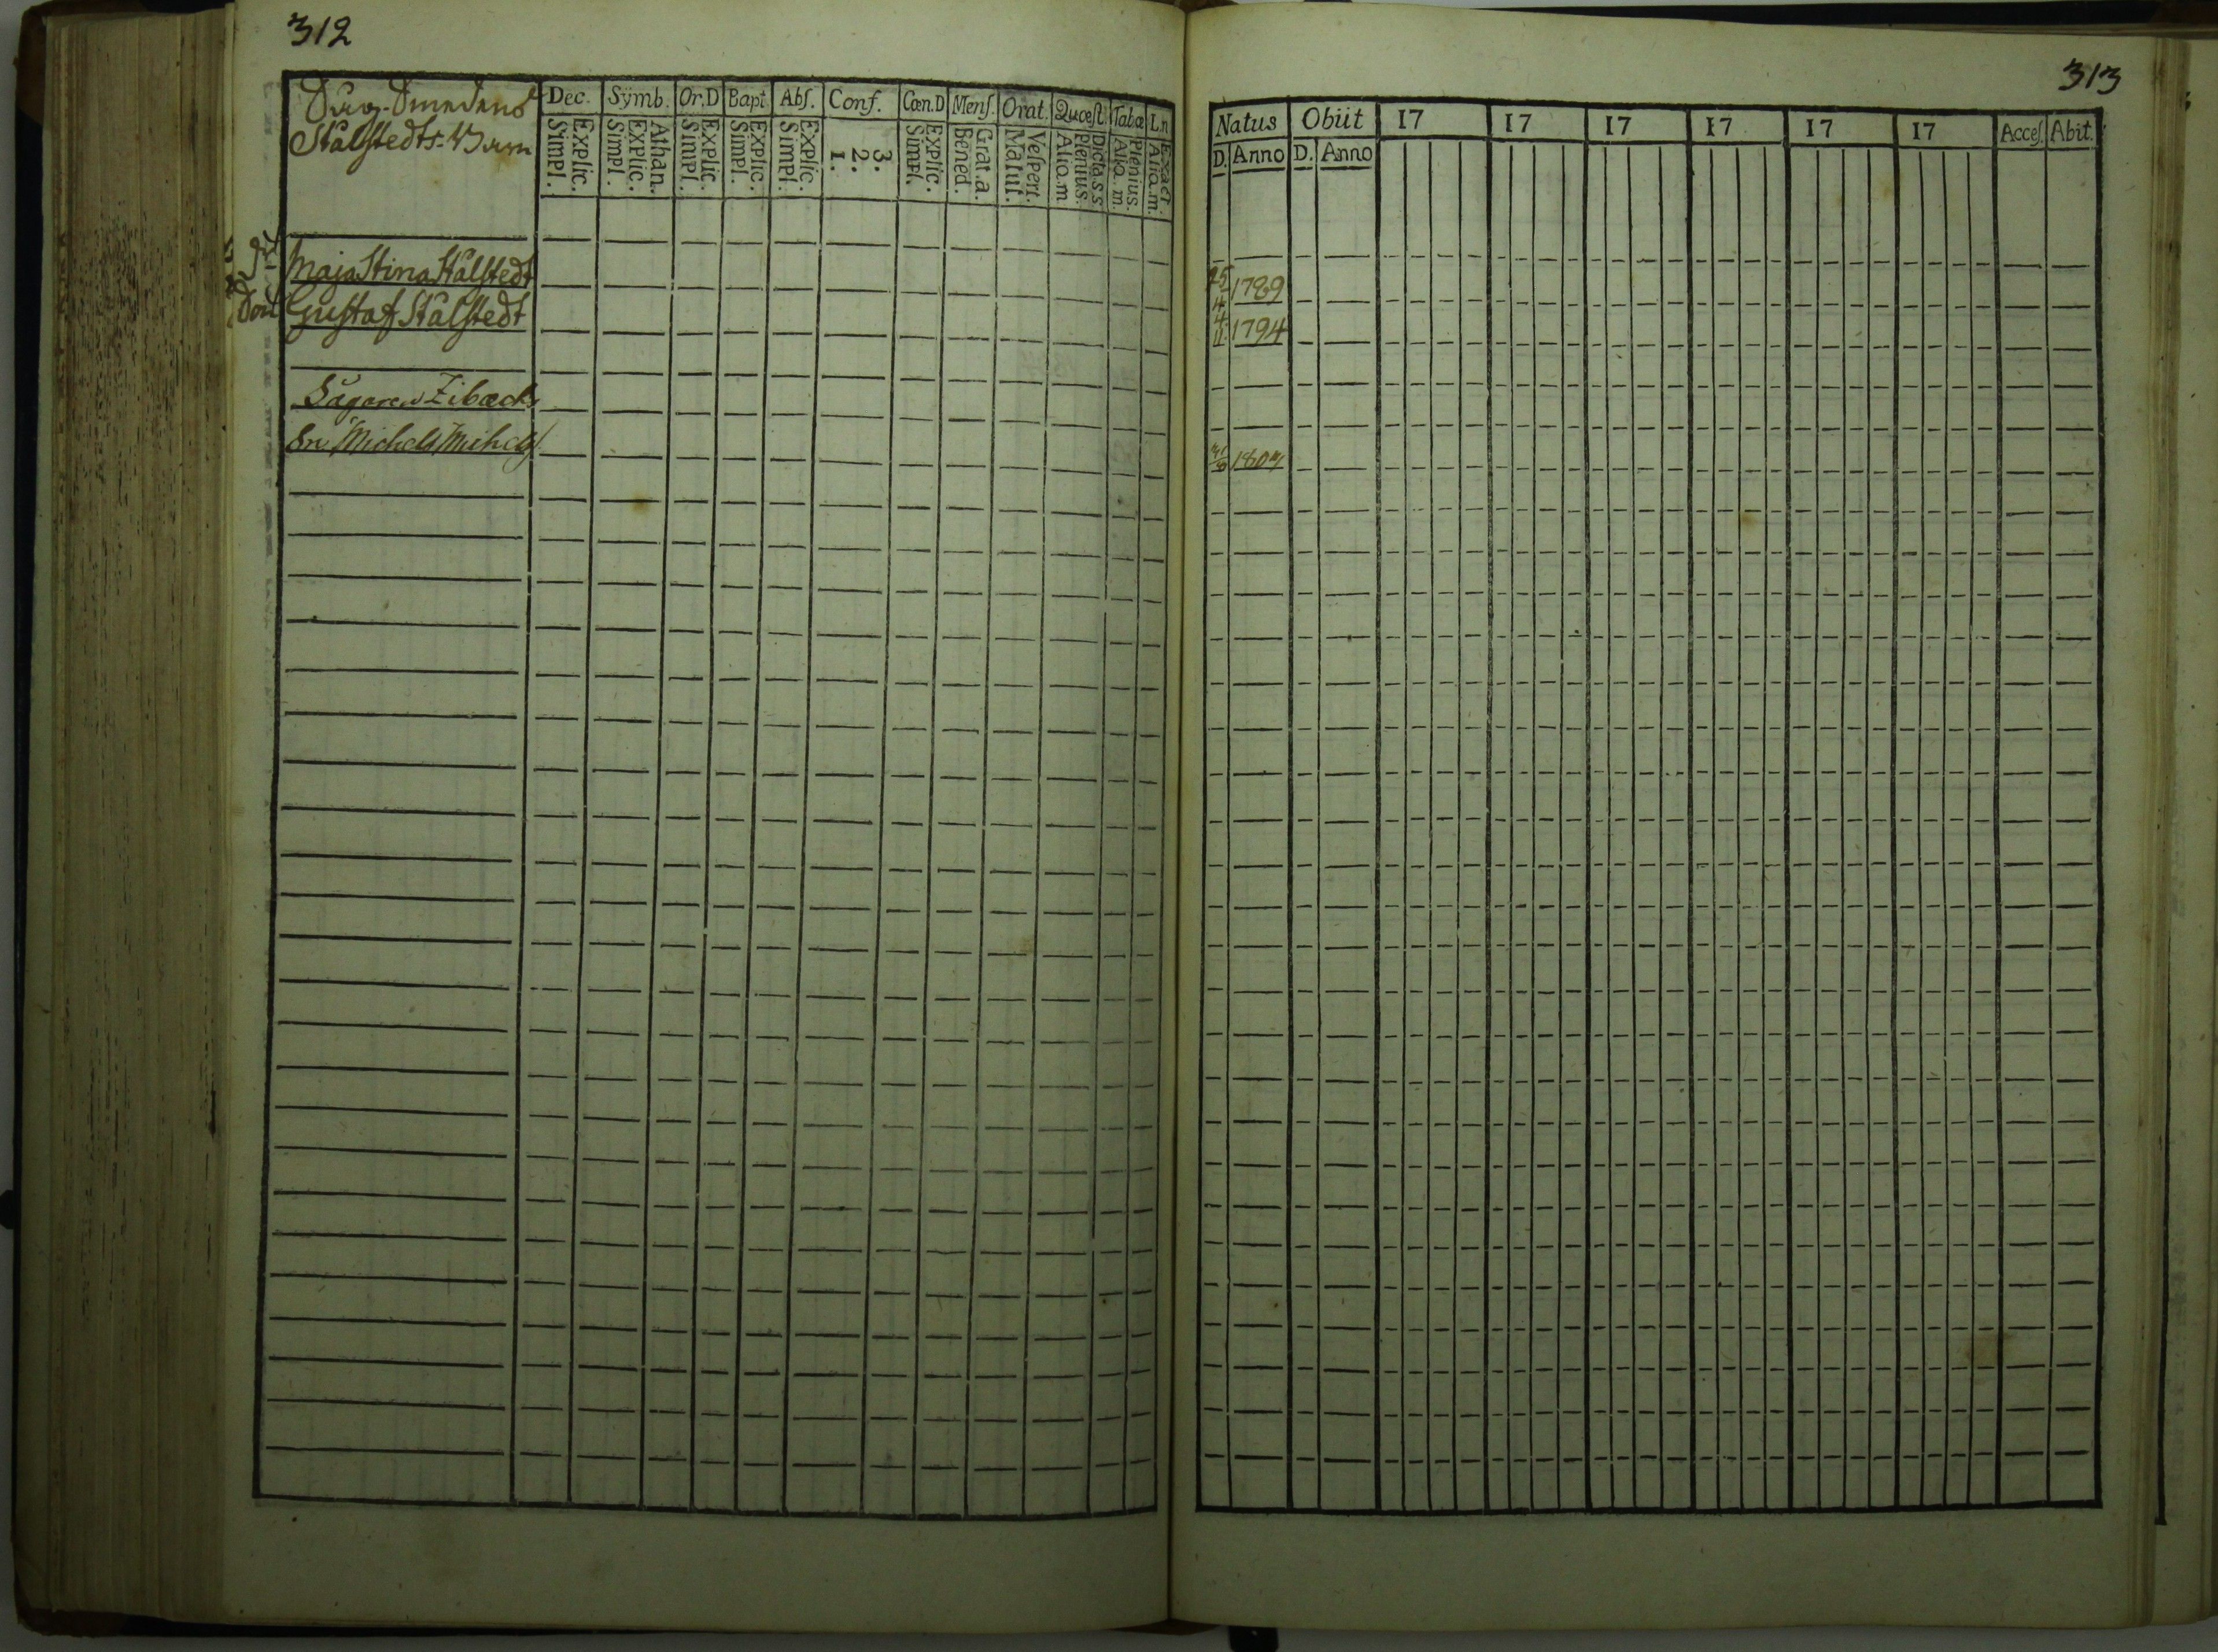 312
Stålstedts Barn
Dec. Sÿmb. Or.D Bapt. Abſ. Conf. Cœn.D Menſ. Orat. Quœſt. Tabœ L.n
Explic. Simpl. Athan. Explic. Simpl. Explic. Simpl. Explic. Simpl. Explic. Simpl. 3. 2. 1. Explic. Simpl. Grat.a. Bened. Veſpert. Matut. Dicta.s.s Plenius. Alio.m Plenius. Aliq.m. Exact. Aliq.m.
Maja Stina Stålstedt
Son Gustaf Stålstedt
Sågaren Zibachs
313
Natus Obiit 17 17 17 17 17 17 Acceſ. Abit.
D. Anno D. Anno
25/4 1789
4/11 1794